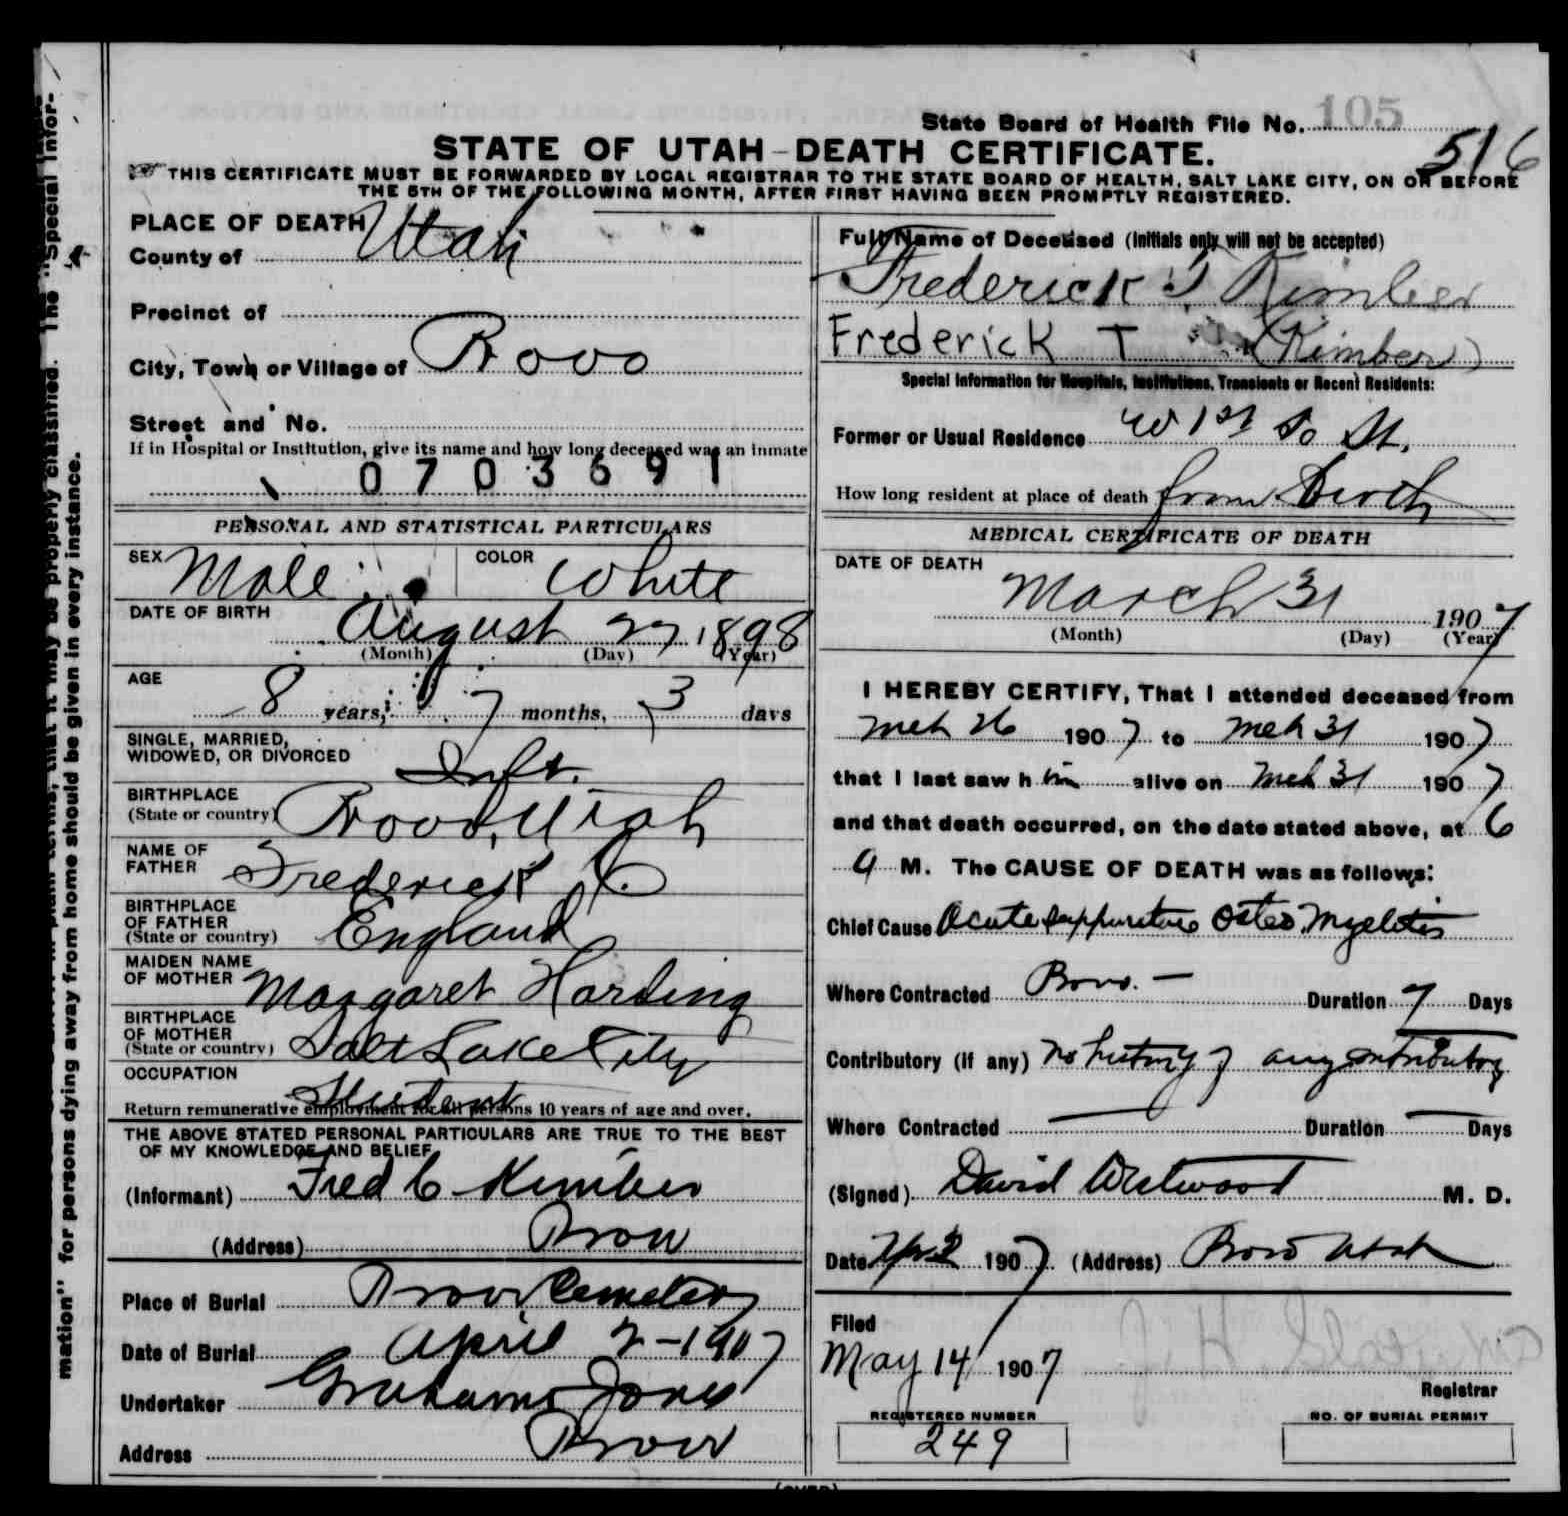 State Board of Health File No. 105
516
STATE OF UTAH-DEATH CERTIFICATE.
THIS CERTIFICATE MUST BE FORWARDED BY LOCAL REGISTRAR TO THE STATE BOARD OF HEALTH, SALT LAKE CITY, ON OR BEFORE
THE 5TH OF THE FOLLOWING MONTH, AFTER FIRST HAVING BEEN PROMPTLY REGISTERED.
PLACE OF DEATH
County of Utah
Precinct of
City, Town or Village of Provo
Street and No.
If in Hospital or Institution, give its name and how long deceased was an inmate
0703691
PERSONAL AND STATISTICAL PARTICULARS
SEX Male COLOR White
DATE OF BIRTH August 27 1898
(Month) (Day) (Year)
AGE
8 years, 7 months, 3 days
SINGLE, MARRIED,
WIDOWED, OR DIVORCED Inft.
BIRTHPLACE
(State or country) Provo, Utah
NAME OF
FATHER Frederick C.
BIRTHPLACE
OF FATHER
(State or country) England
MAIDEN NAME
OF MOTHER Margaret Harding
BIRTHPLACE
OF MOTHER
(State or country) Salt Lake City
OCCUPATION
Student
Return remunerative employment for all persons 10 years of age and over.
THE ABOVE STATED PERSONAL PARTICULARS ARE TRUE TO THE BEST
OF MY KNOWLEDGE AND BELIEF
(Informant) Fred C Kimber
(Address) Provo
Place of Burial Provo Cemetery
Date of Burial April 2-1907
Undertaker Graham Jones
Address Provo
Full Name of Deceased (Initials only will not be accepted)
Frederick T Kimber
Frederick T (Kimber)
Special Information for Hospitals, Institutions, Transients or Recent Residents:
Former or Usual Residence W 1st So St.
How long resident at place of death from Birth
MEDICAL CERTIFICATE OF DEATH
DATE OF DEATH
March 31 1907
(Month) (Day) (Year)
I HEREBY CERTIFY, That I attended deceased from
Mch 26 1907 to Mch 31 1907
that I last saw h im alive on Mch 31 1907
and that death occurred, on the date stated above, at 6
a M. The CAUSE OF DEATH was as follows:
Chief Cause Acute suppurative Osteo Myelitis
Where Contracted Provo. - Duration 7 Days
Contributory (if any) no history of any contributory
Where Contracted — Duration — Days
(Signed) David Westwood M. D.
Date Apr 2 1907 (Address) Provo Utah
Filed
May 14 1907
Registrar
REGISTERED NUMBER
249
NO. OF BURIAL PERMIT
(OVER)
mation" for persons dying away from home should be given in every instance.